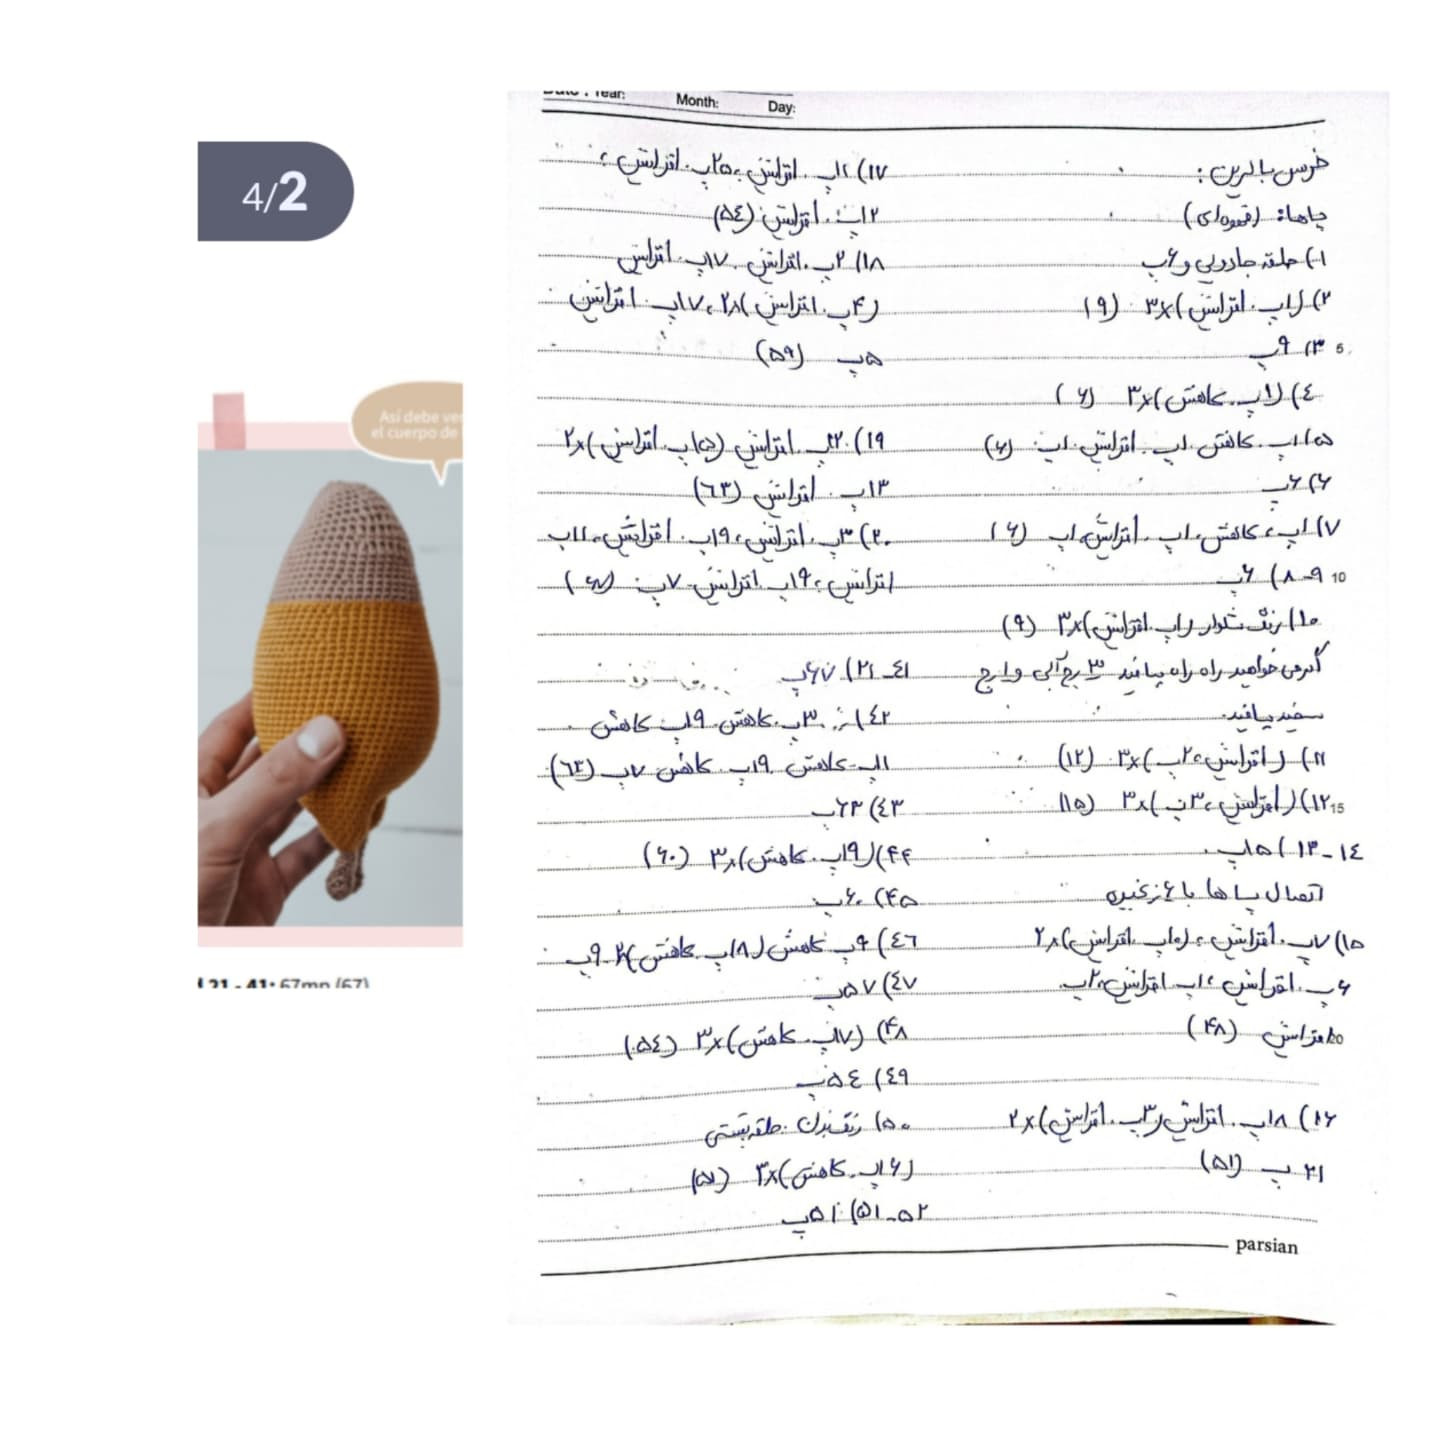 4/2
Así debe ver
el cuerpo de
21 - 41: 67mp (67)
Date : Year: Month: Day:
خرس بالرین :
پاها: (قهوه‌ای)
۱) حلقه جادویی و ۶پ
۲) (۱پ. افزایش)×۳ (۹)
5
۳) ۹پ
٤) (۱پ. کاهش)×۳ (۶)
۵) ۱پ. کاهش. ۱پ. افزایش. ۱پ (۶)
۶) ۶پ
۷) ۱پ، کاهش، ۱پ. افزایش، ۱پ (۶)
10
۸-۹) ۶پ
۱۰) رنگ شلوار (۱پ. افزایش)×۳ (۹)
اگر می خواهید راه راه ببافید ۳ رج آبی و ۱ رج
سفید ببافید.
۱۱) (افزایش، ۲پ)×۳ (۱۲)
15
۱۲) (افزایش، ۳پ)×۳ (۱۵)
۱۳-۱٤) ۱۵پ.
اتصال پاها با ٤ زنجیر
۱۵) ۷پ. افزایش، (۵پ. افزایش)×۲
۶پ. افزایش، ۱پ. افزایش، ۲پ.
20
افزایش (۴۸)
۱۶) ۱۸پ. افزایش (۳پ. افزایش)×۲
۲۱پ (۵۱)
۱۷) ۱۲پ. افزایش، ۲۵پ. افزایش،
۱۲پ. افزایش (۵٤)
۱۸) ۲پ. افزایش. ۱۷پ. افزایش
(۴پ. افزایش)×۲، ۱۷پ. افزایش
۵پ (۵۹)
۱۹) ۲۲پ. افزایش (۵پ. افزایش)×۲
۱۳پ. افزایش (٦۳)
۲۰) ۳پ. افزایش، ۱۹پ. افزایش، ۱۱پ
افزایش، ۱۹پ. افزایش. ۷پ (۶۷)
۲۱-٤۱) ۶۷پ
٤۲) ۳پ. کاهش. ۱۹پ. کاهش
۱۱پ. کاهش. ۱۹پ. کاهش ۷پ (٦۳)
٤۳) ۶۳پ
۴۴) (۱۹پ. کاهش)×۳ (۶۰)
۴۵) ۶۰پ
٤٦) ۹پ کاهش (۱۸پ. کاهش)×۲. ۹پ
٤۷) ۵۷پ
۴۸) (۱۷پ. کاهش)×۳ (۵٤)
٤۹) ۵٤پ
۵۰) رنگ بدن. حلقه پشتی
(۱۶پ. کاهش)×۳ (۵۱)
۵۱-۵۲) ۵۱پ
parsian